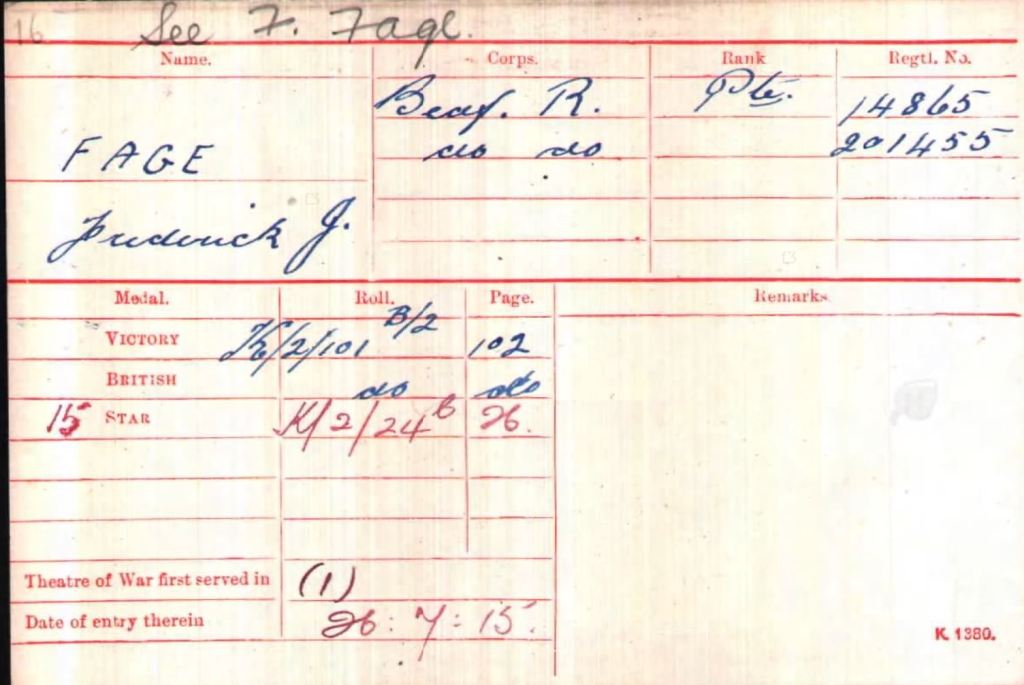 16 See F. Fage.
Name. Corps. Rank Regtl. No.
Bedf. R. Pte. 14865
FAGE do do 201455
Frederick J.
Medal. Roll. Page. Remarks
VICTORY K/2/101 B/2 102
BRITISH do do
15 STAR K/2/24B 26.
Theatre of War first served in (1)
Date of entry therein 26: 7: 15.
K. 1380.